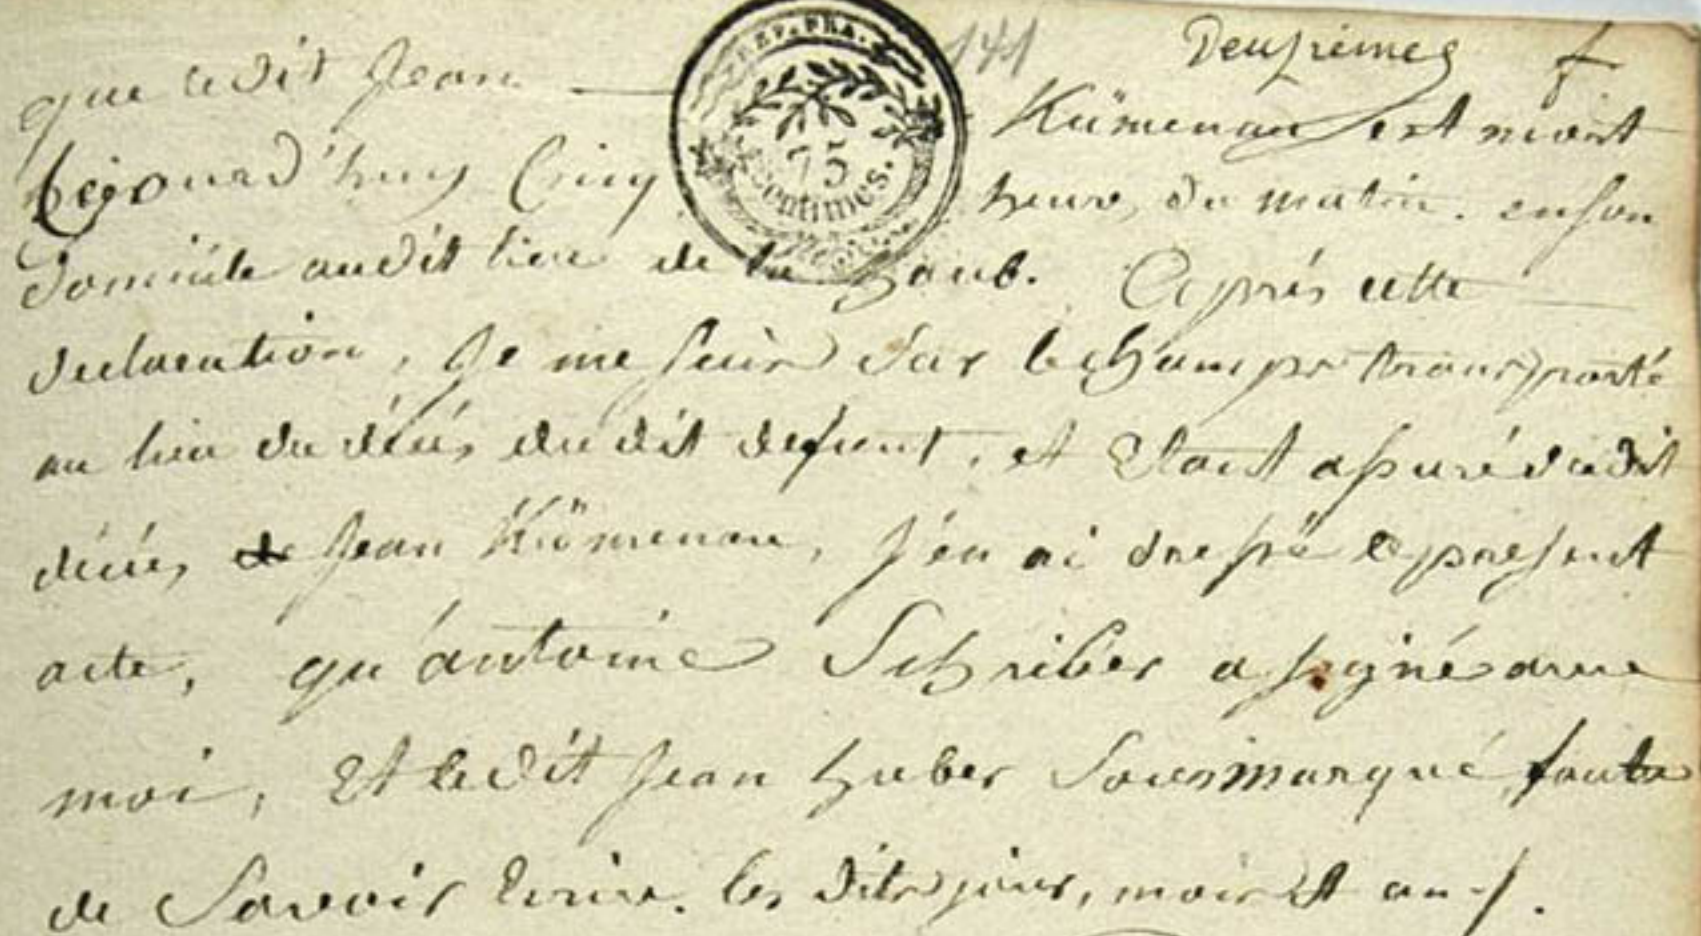 141 Deuxiémes f
REP. FRA.
75 centimes.
que ledit Jean Kümenau est mort
cejourd'huy Cinq heures du matin. en son
domicile audit lieu de la Haub. Après cette
declaration, Je me suis sur le champs transporté
au lieu du décès du dit defunt, et Etant assuré dudit
décès de Jean Kümenau, J'en ai dressé le présent
acte, qu'antoine Schriber a signé avec
moi, Et ledit Jean Huber Sousmarqué, faute
de Savoir Ecrire. les dits jour, mois et an -/.